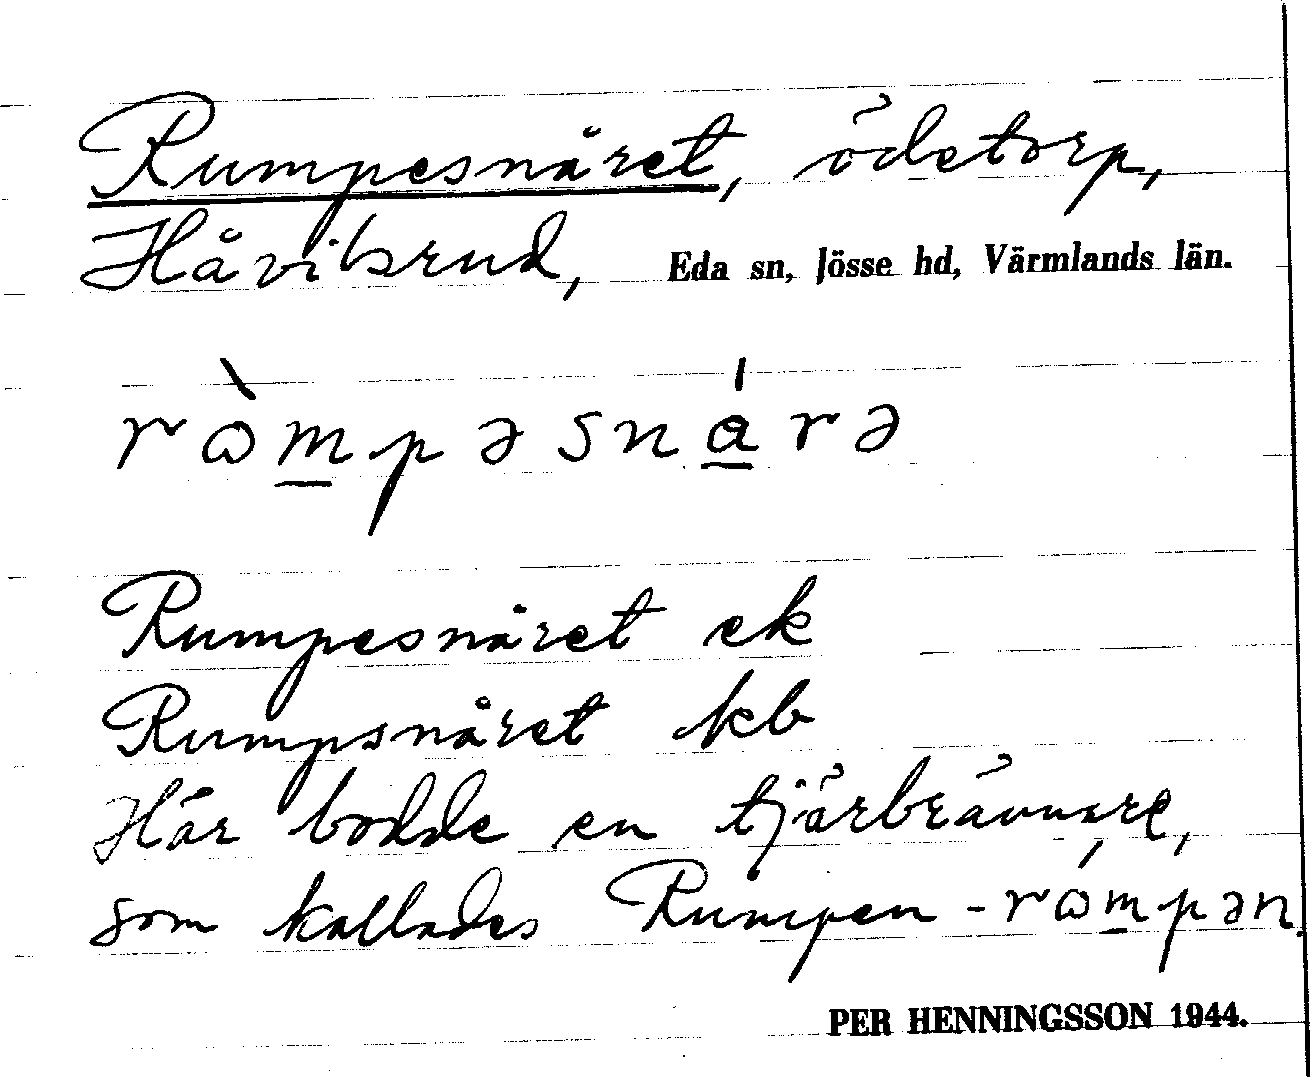 Rumpesnäret, ödetorp,
Håvilsrud, Eda sn, Jösse hd, Värmlands län.
ròmpəsnárə
Rumpesnäret ek
Rumpsnåret kb
Här bodde en tjärbrännare,
som kallades Rumpen - rómpən.
PER HENNINGSSON 1944.